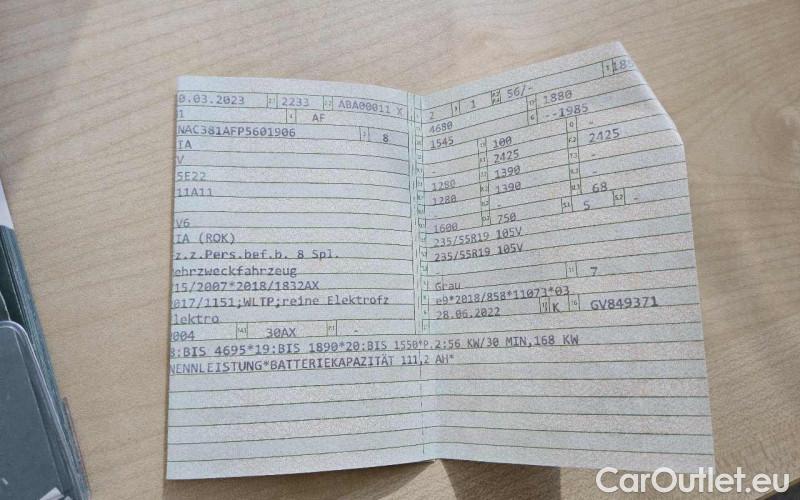 0.03.2023 2.1 2233 2.2 ABA00011 X
01 4 AF
NAC381AFP5601906 3 8
IA
V
5E22
11A11
V6
IA (ROK)
z.z.Pers.bef.b. 8 Spl.
ehrzweckfahrzeug
15/2007*2018/1832AX
017/1151;WLTP;reine Elektrofz
lektro
004 14.1 30AX P.1 -
8:BIS 4695*19:BIS 1890*20:BIS 1550*P.2:56 KW/30 MIN,168 KW
NENNLEISTUNG*BATTERIEKAPAZITÄT 111,2 AH*
2 9 1 P.2 P.4 56/- T 185
4680 19 1880
1545 G --1985
13 100 Q -
2425 F.2 2425
1280 1390 -
1280 1390 -
- - U.3 68
1600 750 S.1 5 S.2 -
235/55R19 105V
235/55R19 105V
-
Grau 11 7
e9*2018/858*11073*03
28.06.2022 K 16 GV849371
CarOutlet.eu